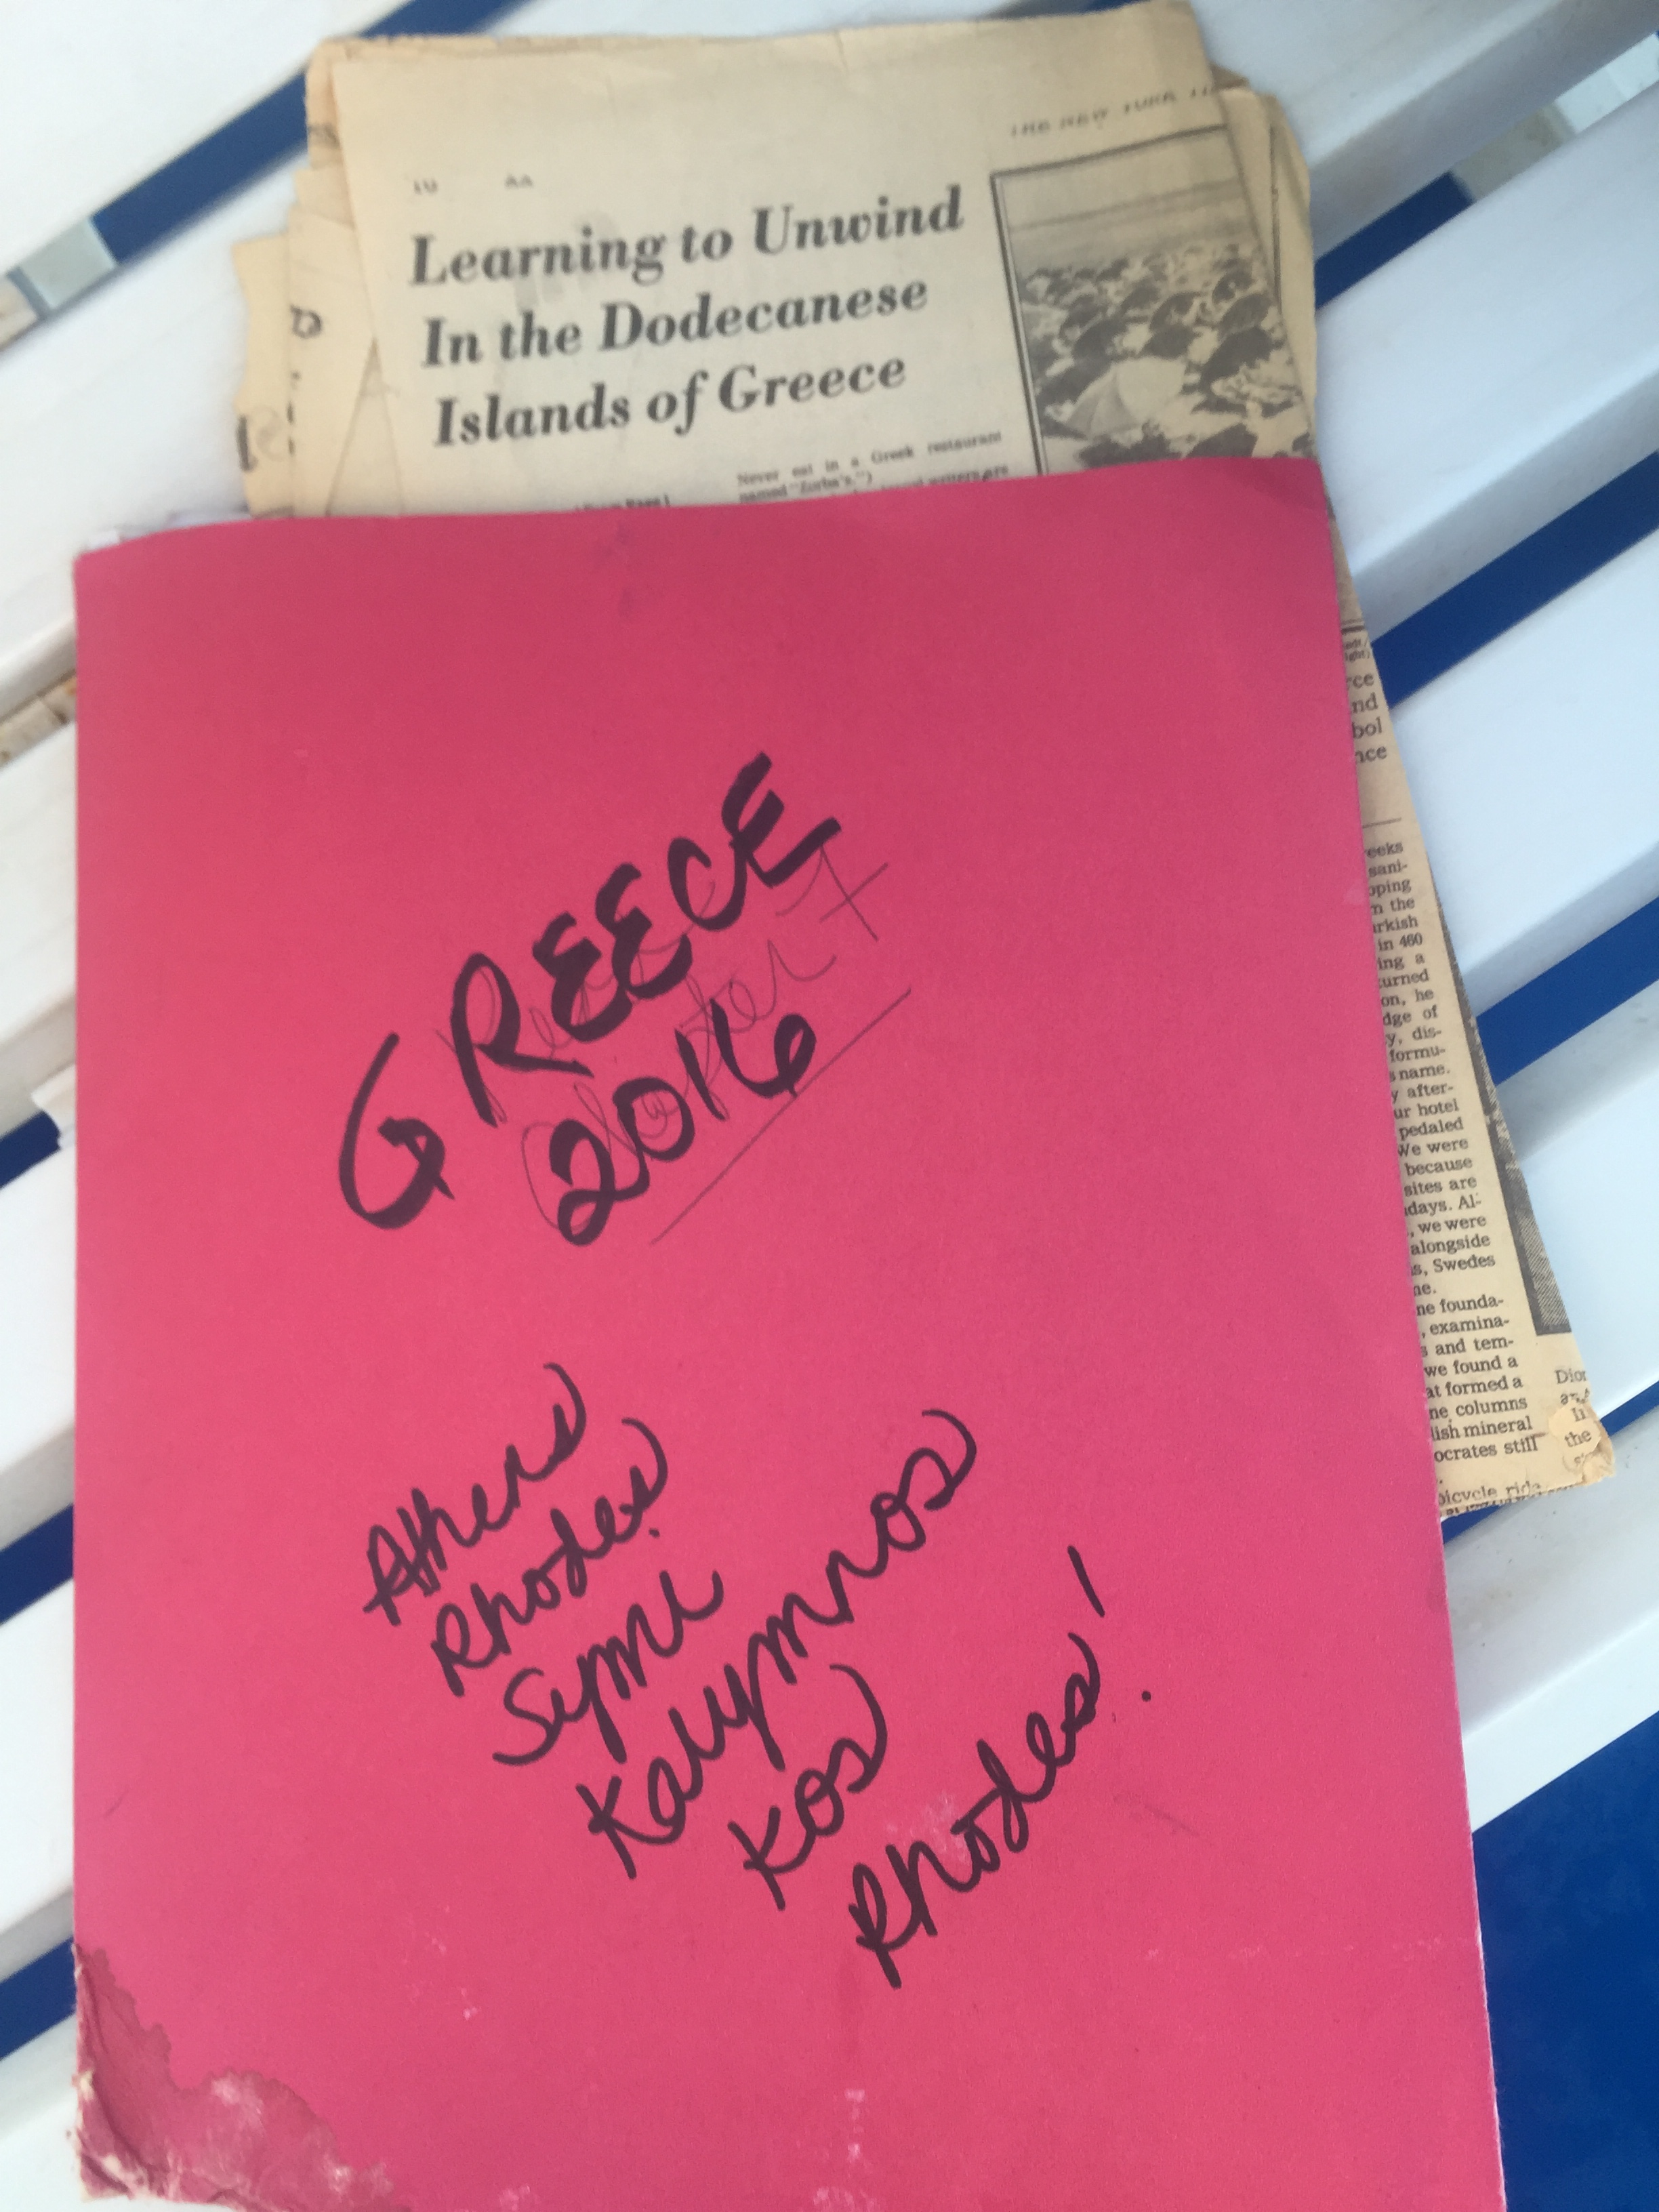 THE NEW YORK
10 AA
Learning to Unwind
In the Dodecanese
Islands of Greece
Never eat in a Greek restaurant
named "Zorba's.")
travel writers are
GREECE
2016
Chapter 7
Athens
Rhodes
Symi
Kalymnos
Kos
Rhodes!
rce
nd
bol
nce
eeks
sani-
pping
m the
urkish
in 460
ing a
turned
on, he
dge of
y, dis-
formu-
s name.
y after-
ur hotel
pedaled
We were
because
sites are
days. Al-
, we were
alongside
s, Swedes
ne.
ne founda-
, examina-
s and tem-
we found a
at formed a
ne columns
lish mineral
ocrates still
bicycle ride
Dion
the